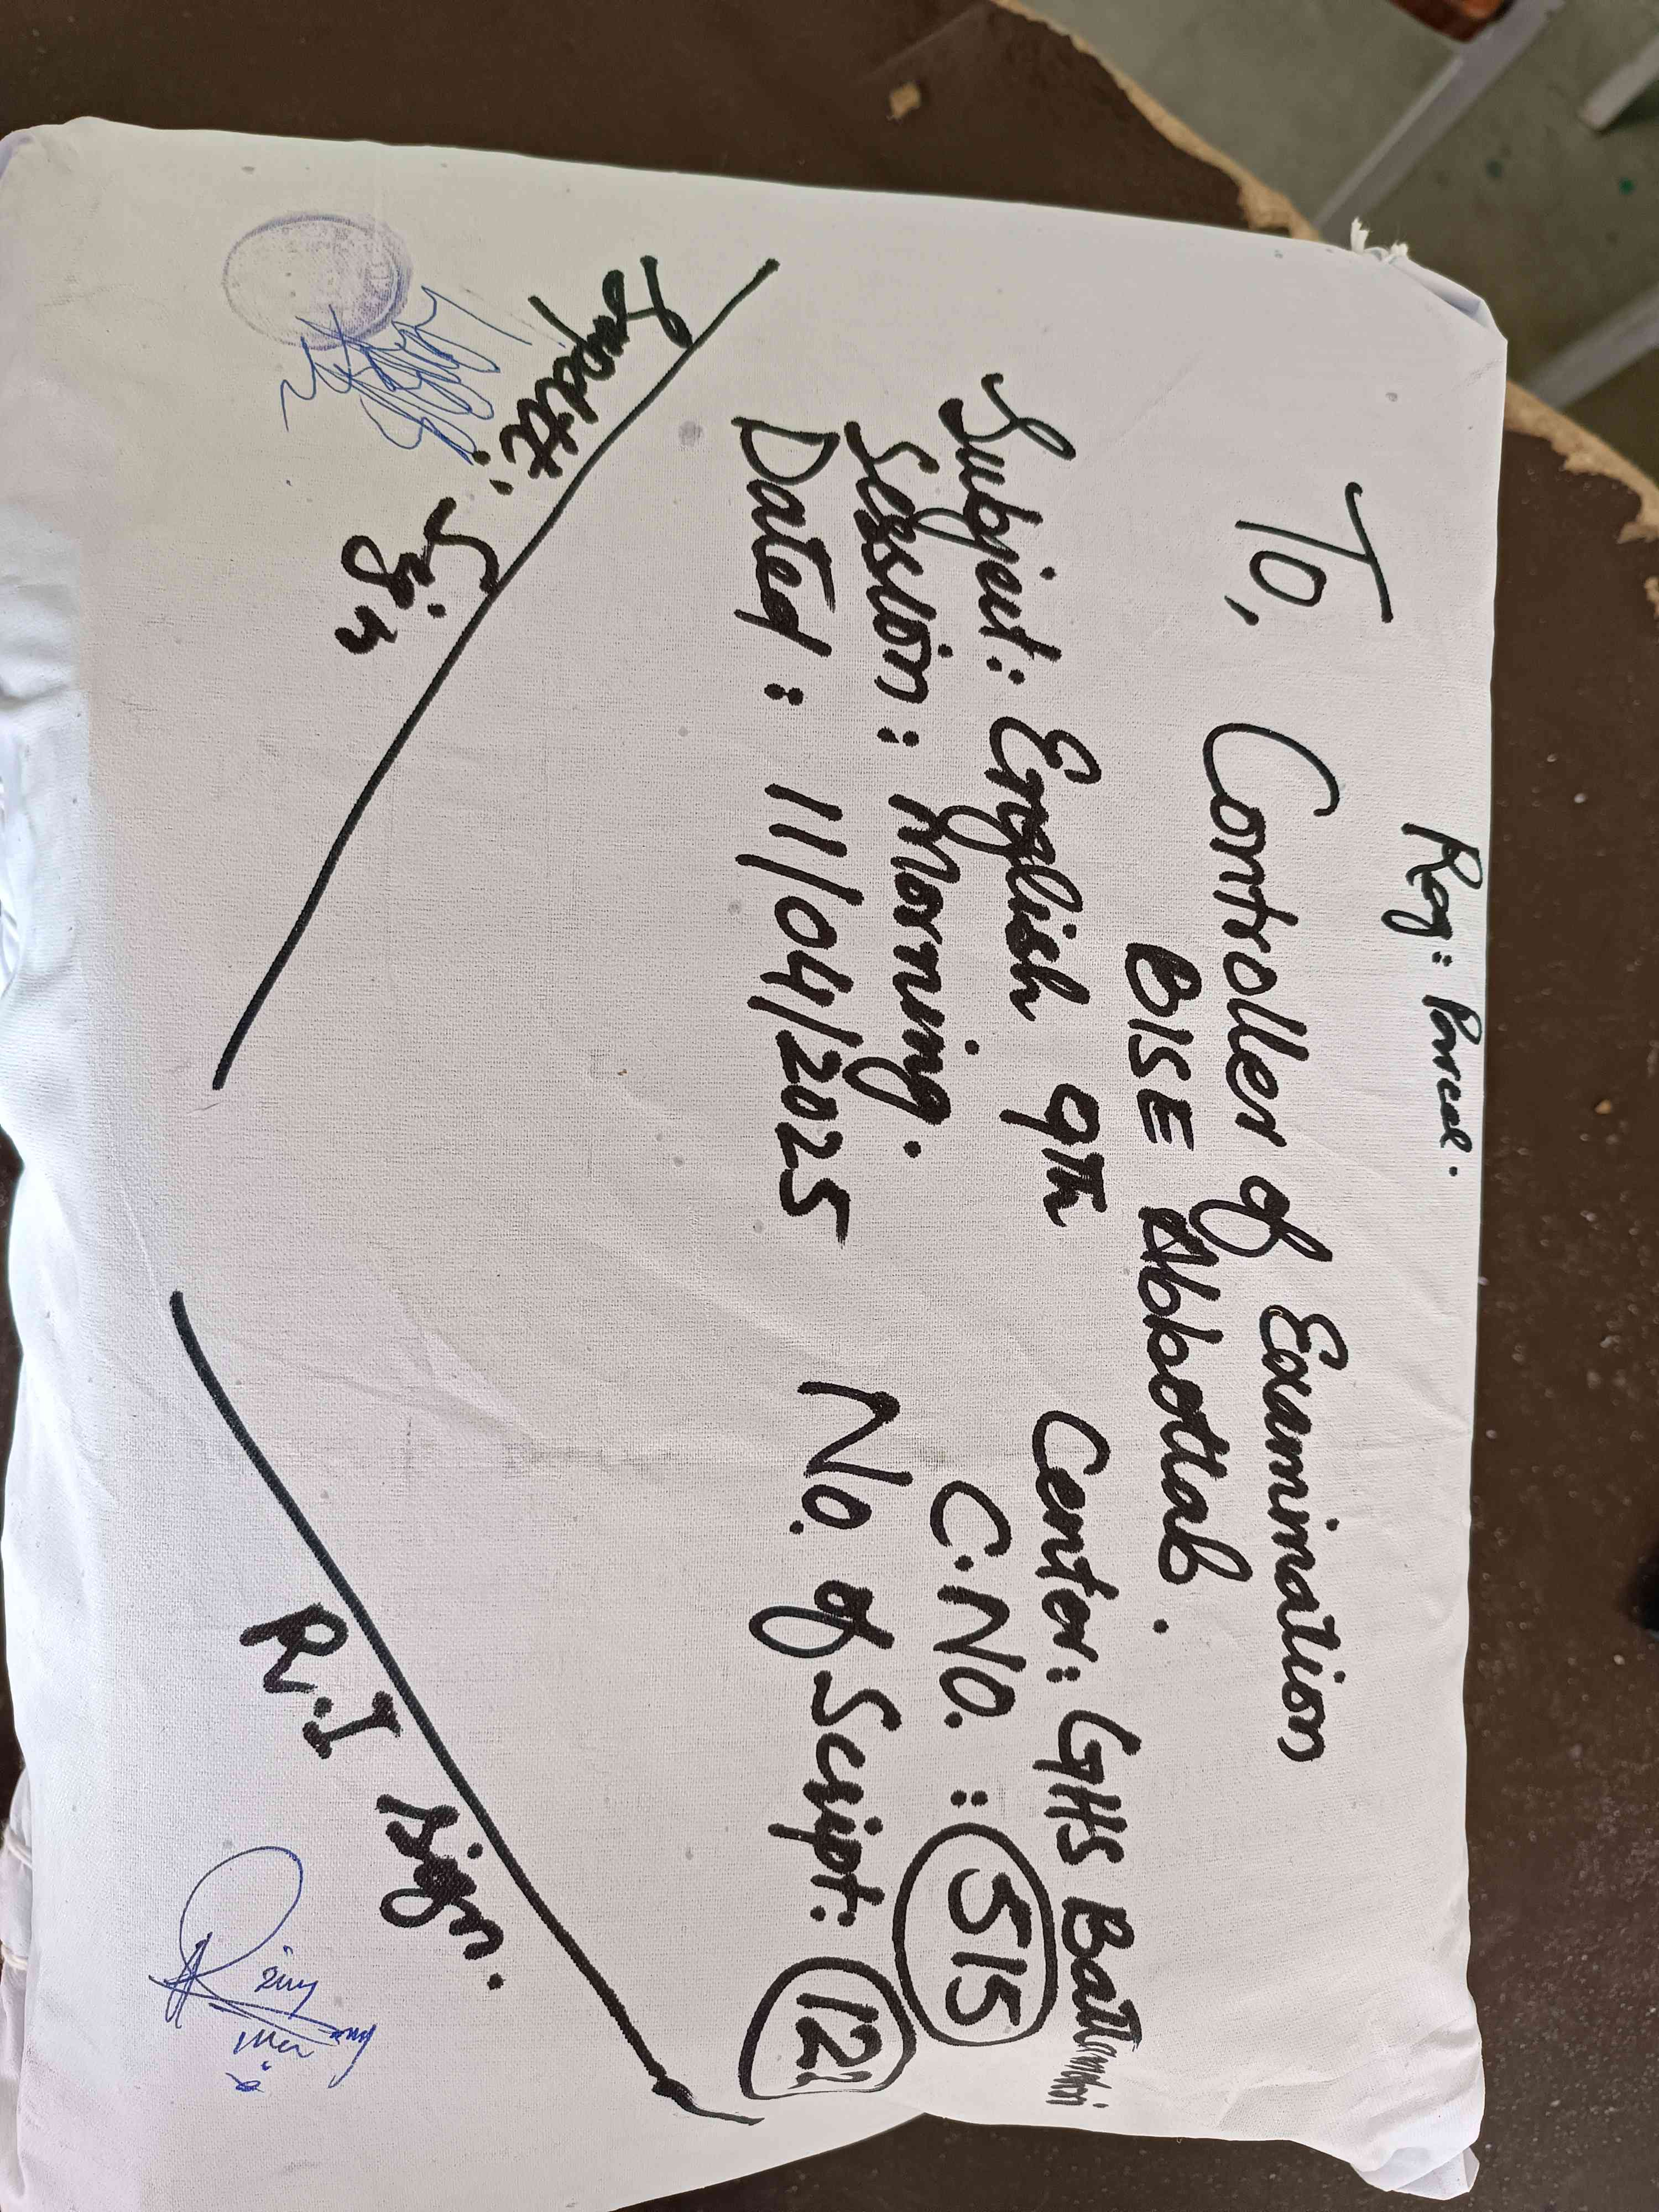 Reg: Parcel.
To,
Controller of Examination
BISE Abbottab.
Subject: English 9th
Center: GHS Battamori
Session: Morning.
C.NO.: 515
Dated: 11/04/2025
No. of Script: 122
Supdtt: Sign
R.I Sign.